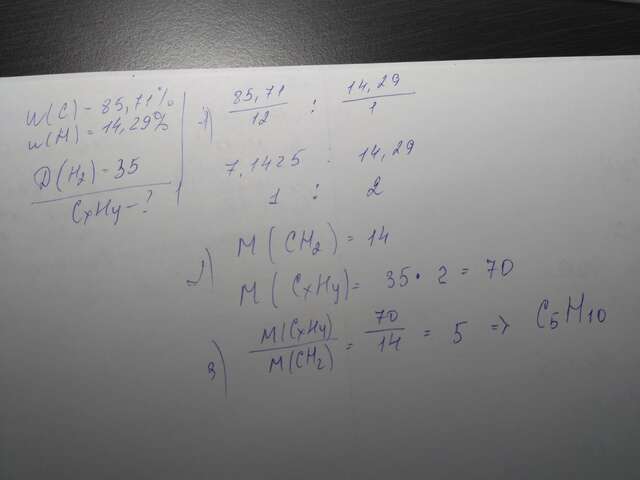 W(C) - 85,71%
W(H) = 14,29%
D(H₂) - 35
CxHy - ?
1) 85,71/12 : 14,29/1
7,1425 : 14,29
1 : 2
2) M(CH₂) = 14
M(CxHy) = 35 · 2 = 70
3) M(CxHy)/M(CH₂) = 70/14 = 5 => C₅H₁₀